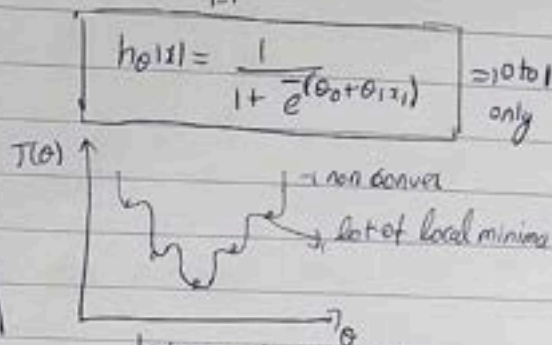 hθ|x| = 1 / 1 + e^-(θ0+θ1x1) ⇒ 0 to 1 only
J(θ)
→ non convex
lot of local minima
θ